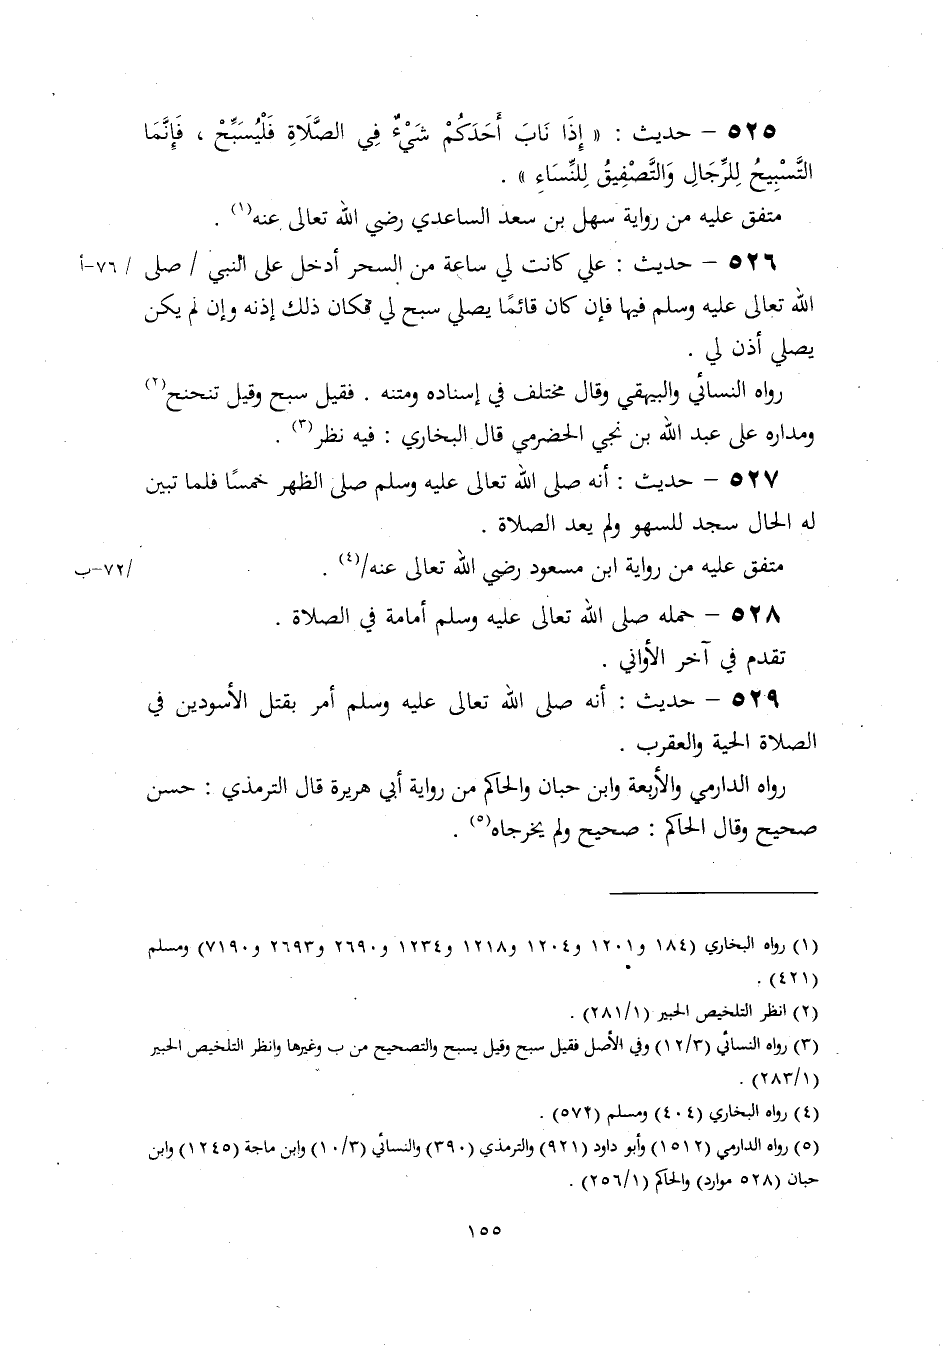 ٥٢٥ – حديث : « إِذَا نَابَ أَحَدَكُمْ شَيْءٌ فِي الصَّلَاةِ فَلْيُسَبِّحْ ، فَإِنَّمَا
التَّسْبِيحُ لِلرِّجَالِ وَالتَّصْفِيقُ لِلنِّسَاءِ » .
متفق عليه من رواية سهل بن سعد الساعدي رضي الله تعالى عنه(١) .
٥٢٦ – حديث : علي كانت لي ساعة من السحر أدخل على النبي / صلى /٧٦-أ
الله تعالى عليه وسلم فيها فإن كان قائمًا يصلي سبح لي فكان ذلك إذنه وإن لم يكن
يصلي أذن لي .
رواه النسائي والبيهقي وقال مختلف في إسناده ومتنه . فقيل سبح وقيل تنحنح(٢)
ومداره على عبد الله بن نجي الحضرمي قال البخاري : فيه نظر(٣) .
٥٢٧ – حديث : أنه صلى الله تعالى عليه وسلم صلى الظهر خمسًا فلما تبين
له الحال سجد للسهو ولم يعد الصلاة .
متفق عليه من رواية ابن مسعود رضي الله تعالى عنه/(٤) . /٧٢-ب
٥٢٨ – حمله صلى الله تعالى عليه وسلم أمامة في الصلاة .
تقدم في آخر الأواني .
٥٢٩ – حديث : أنه صلى الله تعالى عليه وسلم أمر بقتل الأسودين في
الصلاة الحية والعقرب .
رواه الدارمي والأربعة وابن حبان والحاكم من رواية أبي هريرة قال الترمذي : حسن
صحيح وقال الحاكم : صحيح ولم يخرجاه(٥) .
(١) رواه البخاري (٦٨٤ و١٢٠١ و١٢٠٤ و١٢١٨ و١٢٣٤ و٢٦٩٠ و٢٦٩٣ و٧١٩٠) ومسلم
(٤٢١) .
(٢) انظر التلخيص الحبير (٢٨١/١) .
(٣) رواه النسائي (١٢/٣) وفي الأصل فقيل سبح وقيل يسبح والتصحيح من ب وغيرها وانظر التلخيص الحبير
(٢٨٣/١) .
(٤) رواه البخاري (٤٠٤) ومسلم (٥٧٢) .
(٥) رواه الدارمي (١٥١٢) وأبو داود (٩٢١) والترمذي (٣٩٠) والنسائي (١٠/٣) وابن ماجة (١٢٤٥) وابن
حبان (٥٢٨ موارد) والحاكم (٢٥٦/١) .
١٥٥